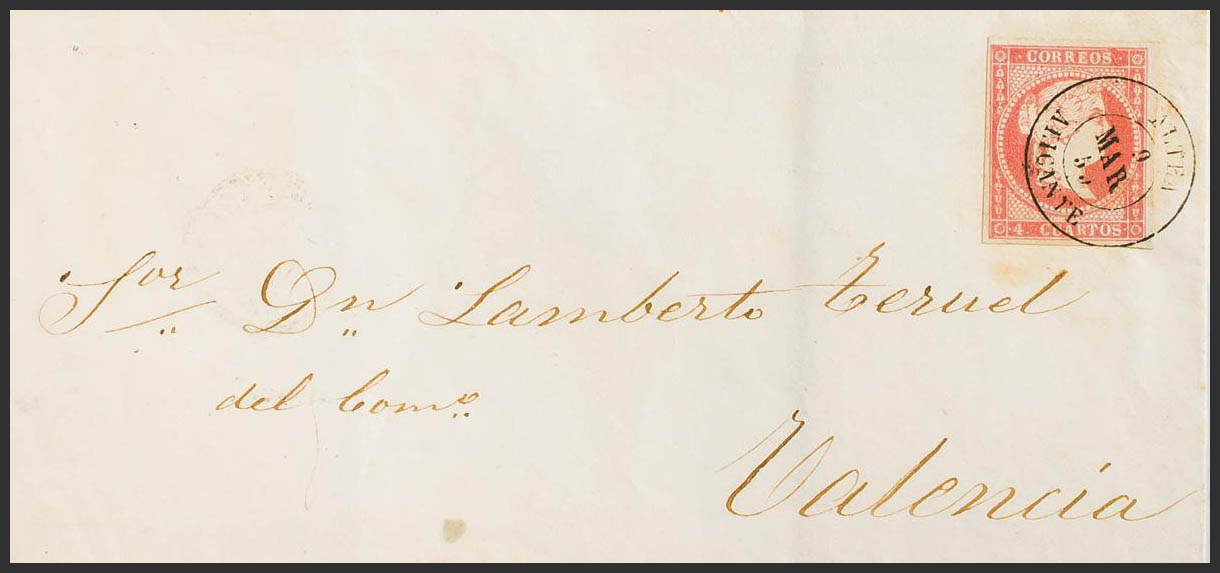 CORREOS
4 CUARTOS
ALTEA
9
MAR
ALICANTE
Sor Dn Lamberto Teruel
del Como
Valencia